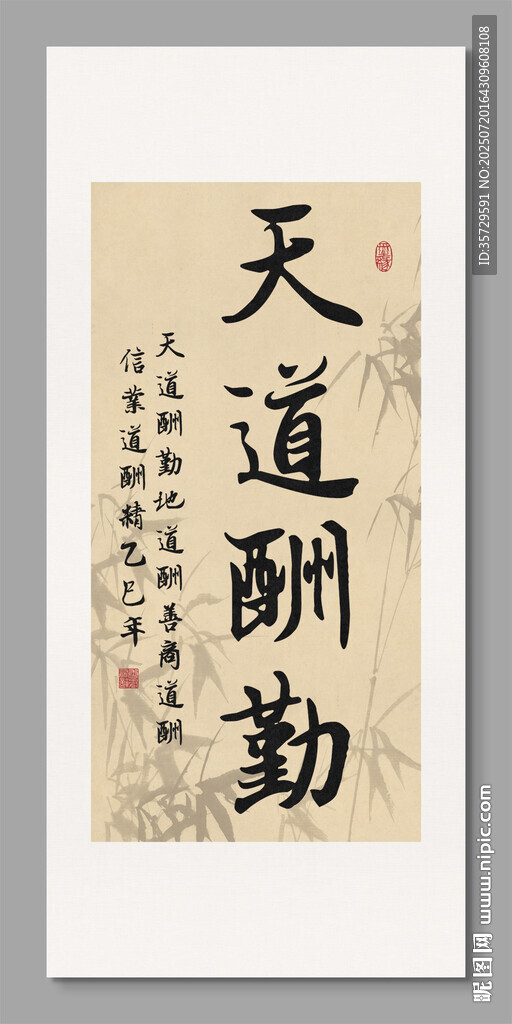 天道酬勤
天道酬勤地道酬善商道酬
信業道酬精乙巳年
ID:35729591 NO:20250720164309608108
昵图网 www.nipic.com